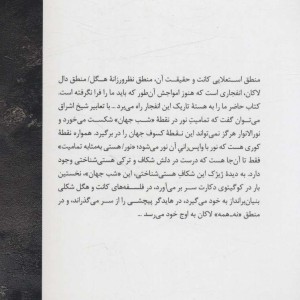 منطق استعلایی کانت و حقیقت آن، منطق نظرورزانهٔ هگل/منطق دال
لاکان، انفجاری است که هنوز امواجش آن‌طور که باید ما را فرا نگرفته است.
کتاب حاضر ما را به هستهٔ تاریک این انفجار راه می‌برد ـ با تعابیر شیخ اشراق
می‌توان گفت که تمامیتِ نور در نقطهٔ «شب جهان» شکست می‌خورد و
نورالانوار هرگز نمی‌تواند این نقطهٔ کسوف جهان را برگیرد. همواره نقطهٔ
کوری هست که نور با واپس‌رانیِ آن نور می‌شود؛ «نور/هستی به‌مثابه تمامیت»
فقط تا آن‌جا هست که درست در دلش شکاف و ترکی هستی‌شناختی وجود
دارد. به دیدهٔ ژیژک این شکافِ هستی‌شناختی، این «شب جهان»، نخستین
بار در کوگیتوی دکارت سر بر می‌آورد، در فلسفه‌های کانت و هگل شکلی
بنیان‌برانداز به خود می‌گیرد، در هایدگر پیچشی را از سر می‌گذراند، و در
منطق «نه‌ـ‌همه» لاکان به اوج خود می‌رسد ...